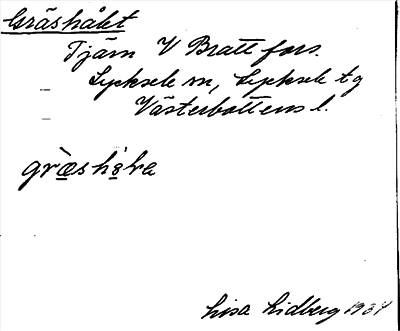 Gräshålet
Tjärn V Brattfors.
Lycksele sn, Lycksele tg
Västerbottens l.
græshǫ̀la
Lisa Lidberg 1934